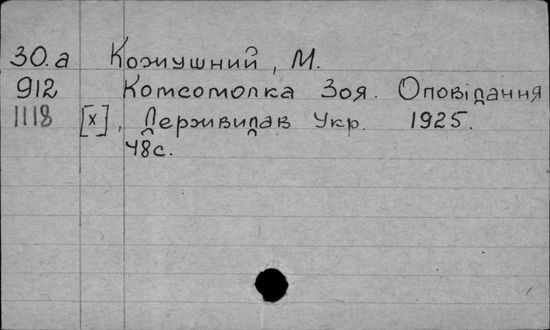 30.a Кожушний, М.
912 Комсомолка Зоя. Оповідання
1118 [x], Держвидав Укр. 1925.
48с.